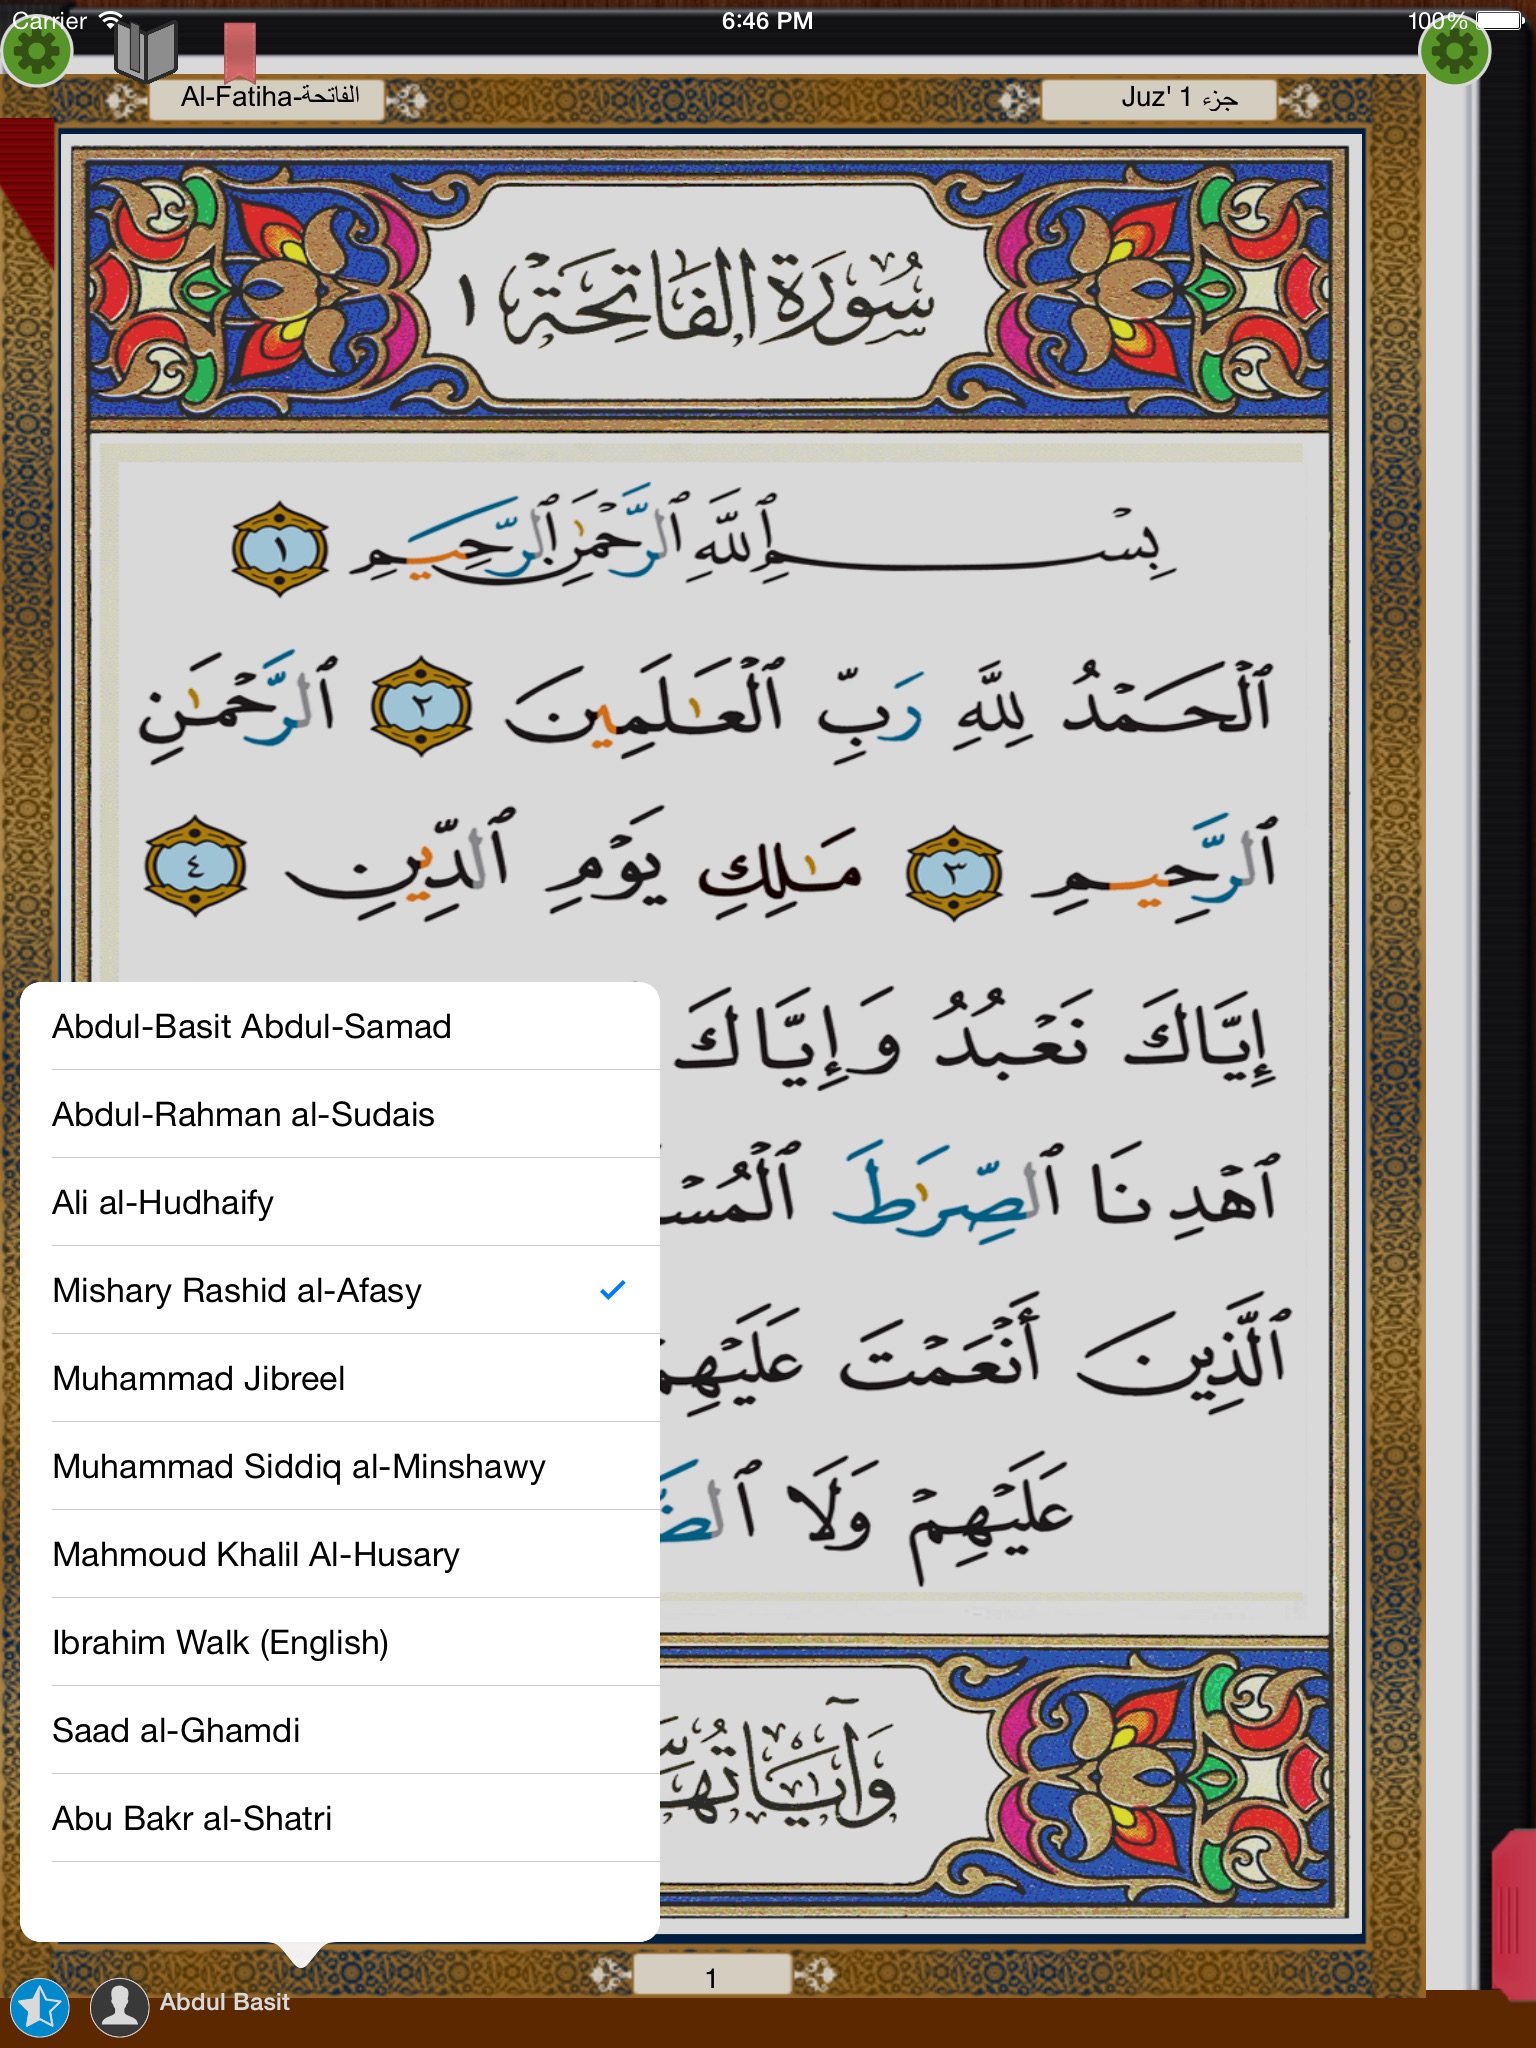 Carrier 6:46 PM 100%
Al-Fatiha-الفاتحة
Juz' 1 جزء
سُورَةُ الفَاتِحَة ١
بِسْمِ ٱللَّهِ ٱلرَّحْمَٰنِ ٱلرَّحِيمِ ١
ٱلْحَمْدُ لِلَّهِ رَبِّ ٱلْعَٰلَمِينَ ٢ ٱلرَّحْمَٰنِ
ٱلرَّحِيمِ ٣ مَٰلِكِ يَوْمِ ٱلدِّينِ ٤
إِيَّاكَ نَعْبُدُ وَإِيَّاكَ
ٱهْدِنَا ٱلصِّرَٰطَ
ٱلَّذِينَ أَنْعَمْتَ
عَلَيْهِمْ وَلَا
Abdul-Basit Abdul-Samad
Abdul-Rahman al-Sudais
Ali al-Hudhaify
Mishary Rashid al-Afasy
Muhammad Jibreel
Muhammad Siddiq al-Minshawy
Mahmoud Khalil Al-Husary
Ibrahim Walk (English)
Saad al-Ghamdi
Abu Bakr al-Shatri
1
Abdul Basit